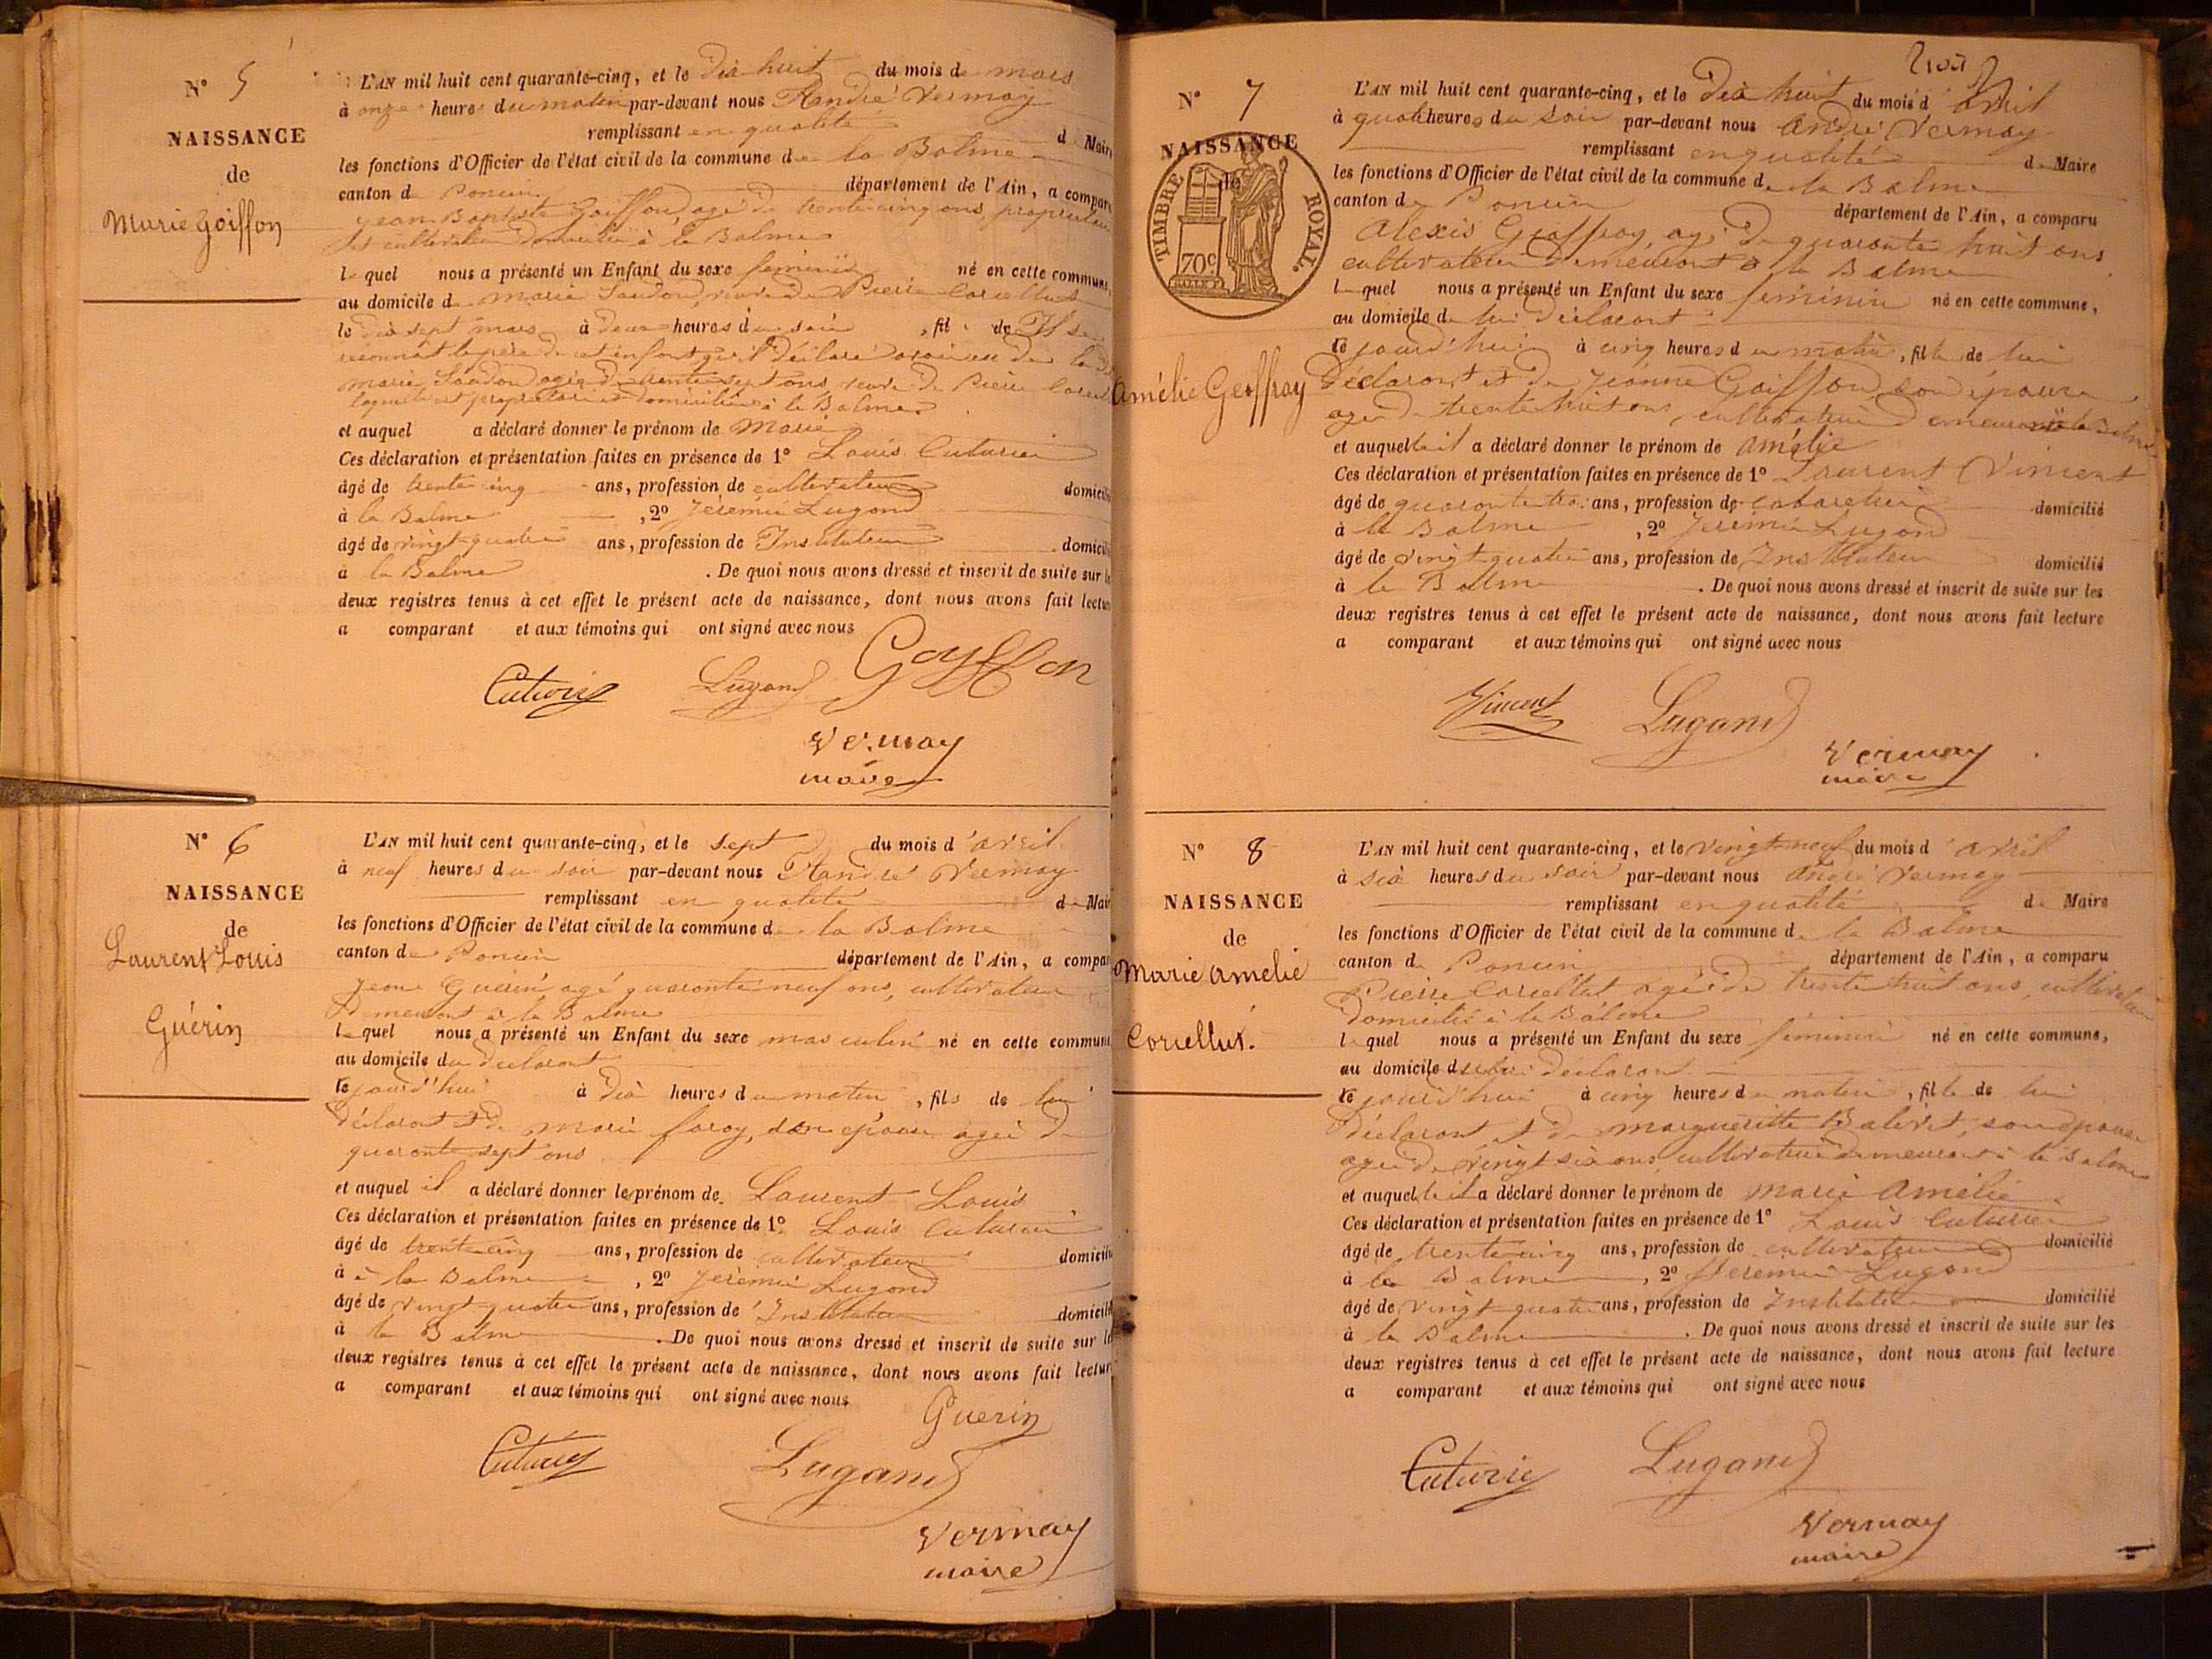 N° 5
NAISSANCE
de
Marie Goiffon
L'AN mil huit cent quarante-cinq, et le Dix huit du mois de mars
à onze heures du matin par-devant nous André Vermay
remplissant en qualité de Maire
les fonctions d'Officier de l'état civil de la commune de la Balme
canton de Poncin département de l'Ain, a comparu
jean-Baptiste Goiffon, agé de trente cinq ans, propriétaire
et cultivateur domicilié à la Balme
lequel nous a présenté un Enfant du sexe féminin né en cette commune,
au domicile de marie veuve de Pierre Corcellut
le dix sept mars à deux heures du soir, fil de Il se
reconnait le père de cet enfant qu'il déclare avoir eu de la
marie agée de trente sept ans, veuve de Pierre
laquelle est propriétaire domiciliée à la Balme
et auquel a déclaré donner le prénom de Marie
Ces déclaration et présentation faites en présence de 1° Louis Cuturier
âgé de trente cinq ans, profession de cultivateur domicilié
à la Balme, 2° Jérémie Lugand
âgé de vingt-quatre ans, profession de Instituteur domicilié
à la Balme. De quoi nous avons dressé et inscrit de suite sur les
deux registres tenus à cet effet le présent acte de naissance, dont nous avons fait lecture
a comparant et aux témoins qui ont signé avec nous
Goyffon
Cuturier Lugand
Vermay
maire
N° 6
NAISSANCE
de
Laurent Louis
Guérin
L'AN mil huit cent quarante-cinq, et le sept du mois d'avril
à neuf heures du soir par-devant nous André Vermay
remplissant en qualité de Maire
les fonctions d'Officier de l'état civil de la commune de la Balme
canton de Poncin département de l'Ain, a comparu
Guérin agé quarante neuf ans, cultivateur
Demeurant à la Balme
lequel nous a présenté un Enfant du sexe masculin né en cette commune
au domicile du déclarant
le jourd'hui à dix heures du matin, fils de lui
déclarant et de marie faroy, son épouse agée de
quarante sept ans
et auquel il a déclaré donner le prénom de Laurent Louis
Ces déclaration et présentation faites en présence de 1° Louis Cuturier
âgé de trente cinq ans, profession de cultivateur domicilié
à à la Balme, 2° Jérémie Lugand
âgé de vingt-quatre ans, profession de Instituteur domicilié
à la Balme. De quoi nous avons dressé et inscrit de suite sur les
deux registres tenus à cet effet le présent acte de naissance, dont nous avons fait lecture
a comparant et aux témoins qui ont signé avec nous
Guerin
Cuturier Lugand
Vermay
maire
N° 7
NAISSANCE
de
TIMBRE ROYAL.
70c
Amélie Geoffray
L'AN mil huit cent quarante-cinq, et le Dix huit du mois d'avril
à quatre heures du soir par-devant nous André Vermay
remplissant en qualité de Maire
les fonctions d'Officier de l'état civil de la commune de la Balme
canton de Poncin département de l'Ain, a comparu
Alexis Geoffray, agé de quarante huit ans
cultivateur demeurant à la Balme
lequel nous a présenté un Enfant du sexe féminin né en cette commune,
au domicile de lui déclarant
le jourd'hui à cinq heures du matin, fille de lui
déclarant et de Jeanne Goiffon, son épouse
agée de trente huit ans, cultivateur demeurant à la Balme
et auquelle il a déclaré donner le prénom de amélie
Ces déclaration et présentation faites en présence de 1° Laurent Vincent
âgé de quarante trois ans, profession de cabaretier domicilié
à la Balme, 2° Jérémie Lugand
âgé de vingt-quatre ans, profession de Instituteur domicilié
à la Balme. De quoi nous avons dressé et inscrit de suite sur les
deux registres tenus à cet effet le présent acte de naissance, dont nous avons fait lecture
a comparant et aux témoins qui ont signé avec nous
Vincent Lugand
Vermay
maire
N° 8
NAISSANCE
de
Marie amelie
Corcellut.
L'AN mil huit cent quarante-cinq, et le vingt-neuf du mois d'avril
à six heures du soir par-devant nous André Vermay
remplissant en qualité de Maire
les fonctions d'Officier de l'état civil de la commune de la Balme
canton de Poncin département de l'Ain, a comparu
Pierre Corcellut agé de trente huit ans, cultivateur
domicilié à la Balme
lequel nous a présenté un Enfant du sexe féminin né en cette commune,
au domicile de lui déclarant
le jourd'hui à cinq heures du matin, fille de lui
déclarant et de margueritte Balivet, son épouse
agée de vingt six ans, cultivateur demeurant à la Balme
et auquelle il a déclaré donner le prénom de marie Amélie
Ces déclaration et présentation faites en présence de 1° Louis Cuturier
âgé de trente cinq ans, profession de cultivateur domicilié
à la Balme, 2° Jeremie Lugand
âgé de vingt-quatre ans, profession de Instituteur domicilié
à la Balme. De quoi nous avons dressé et inscrit de suite sur les
deux registres tenus à cet effet le présent acte de naissance, dont nous avons fait lecture
a comparant et aux témoins qui ont signé avec nous
Cuturier Lugand
Vermay
maire